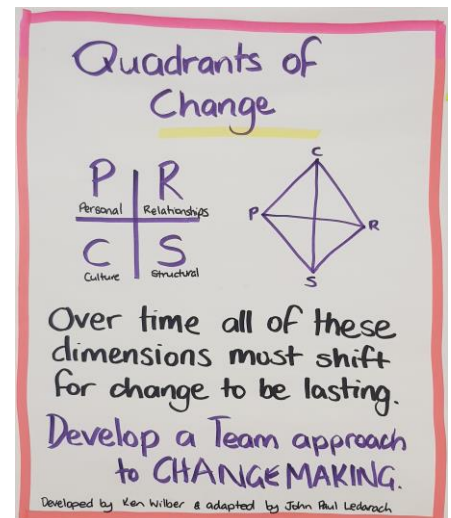 Quadrants of
Change
P R
Personal Relationships
C S
Culture Structural
C
P
R
S
Over time all of these
dimensions must shift
for change to be lasting.
Develop a Team approach
to CHANGEMAKING.
Developed by Ken Wilber & adapted by John Paul Ledarach